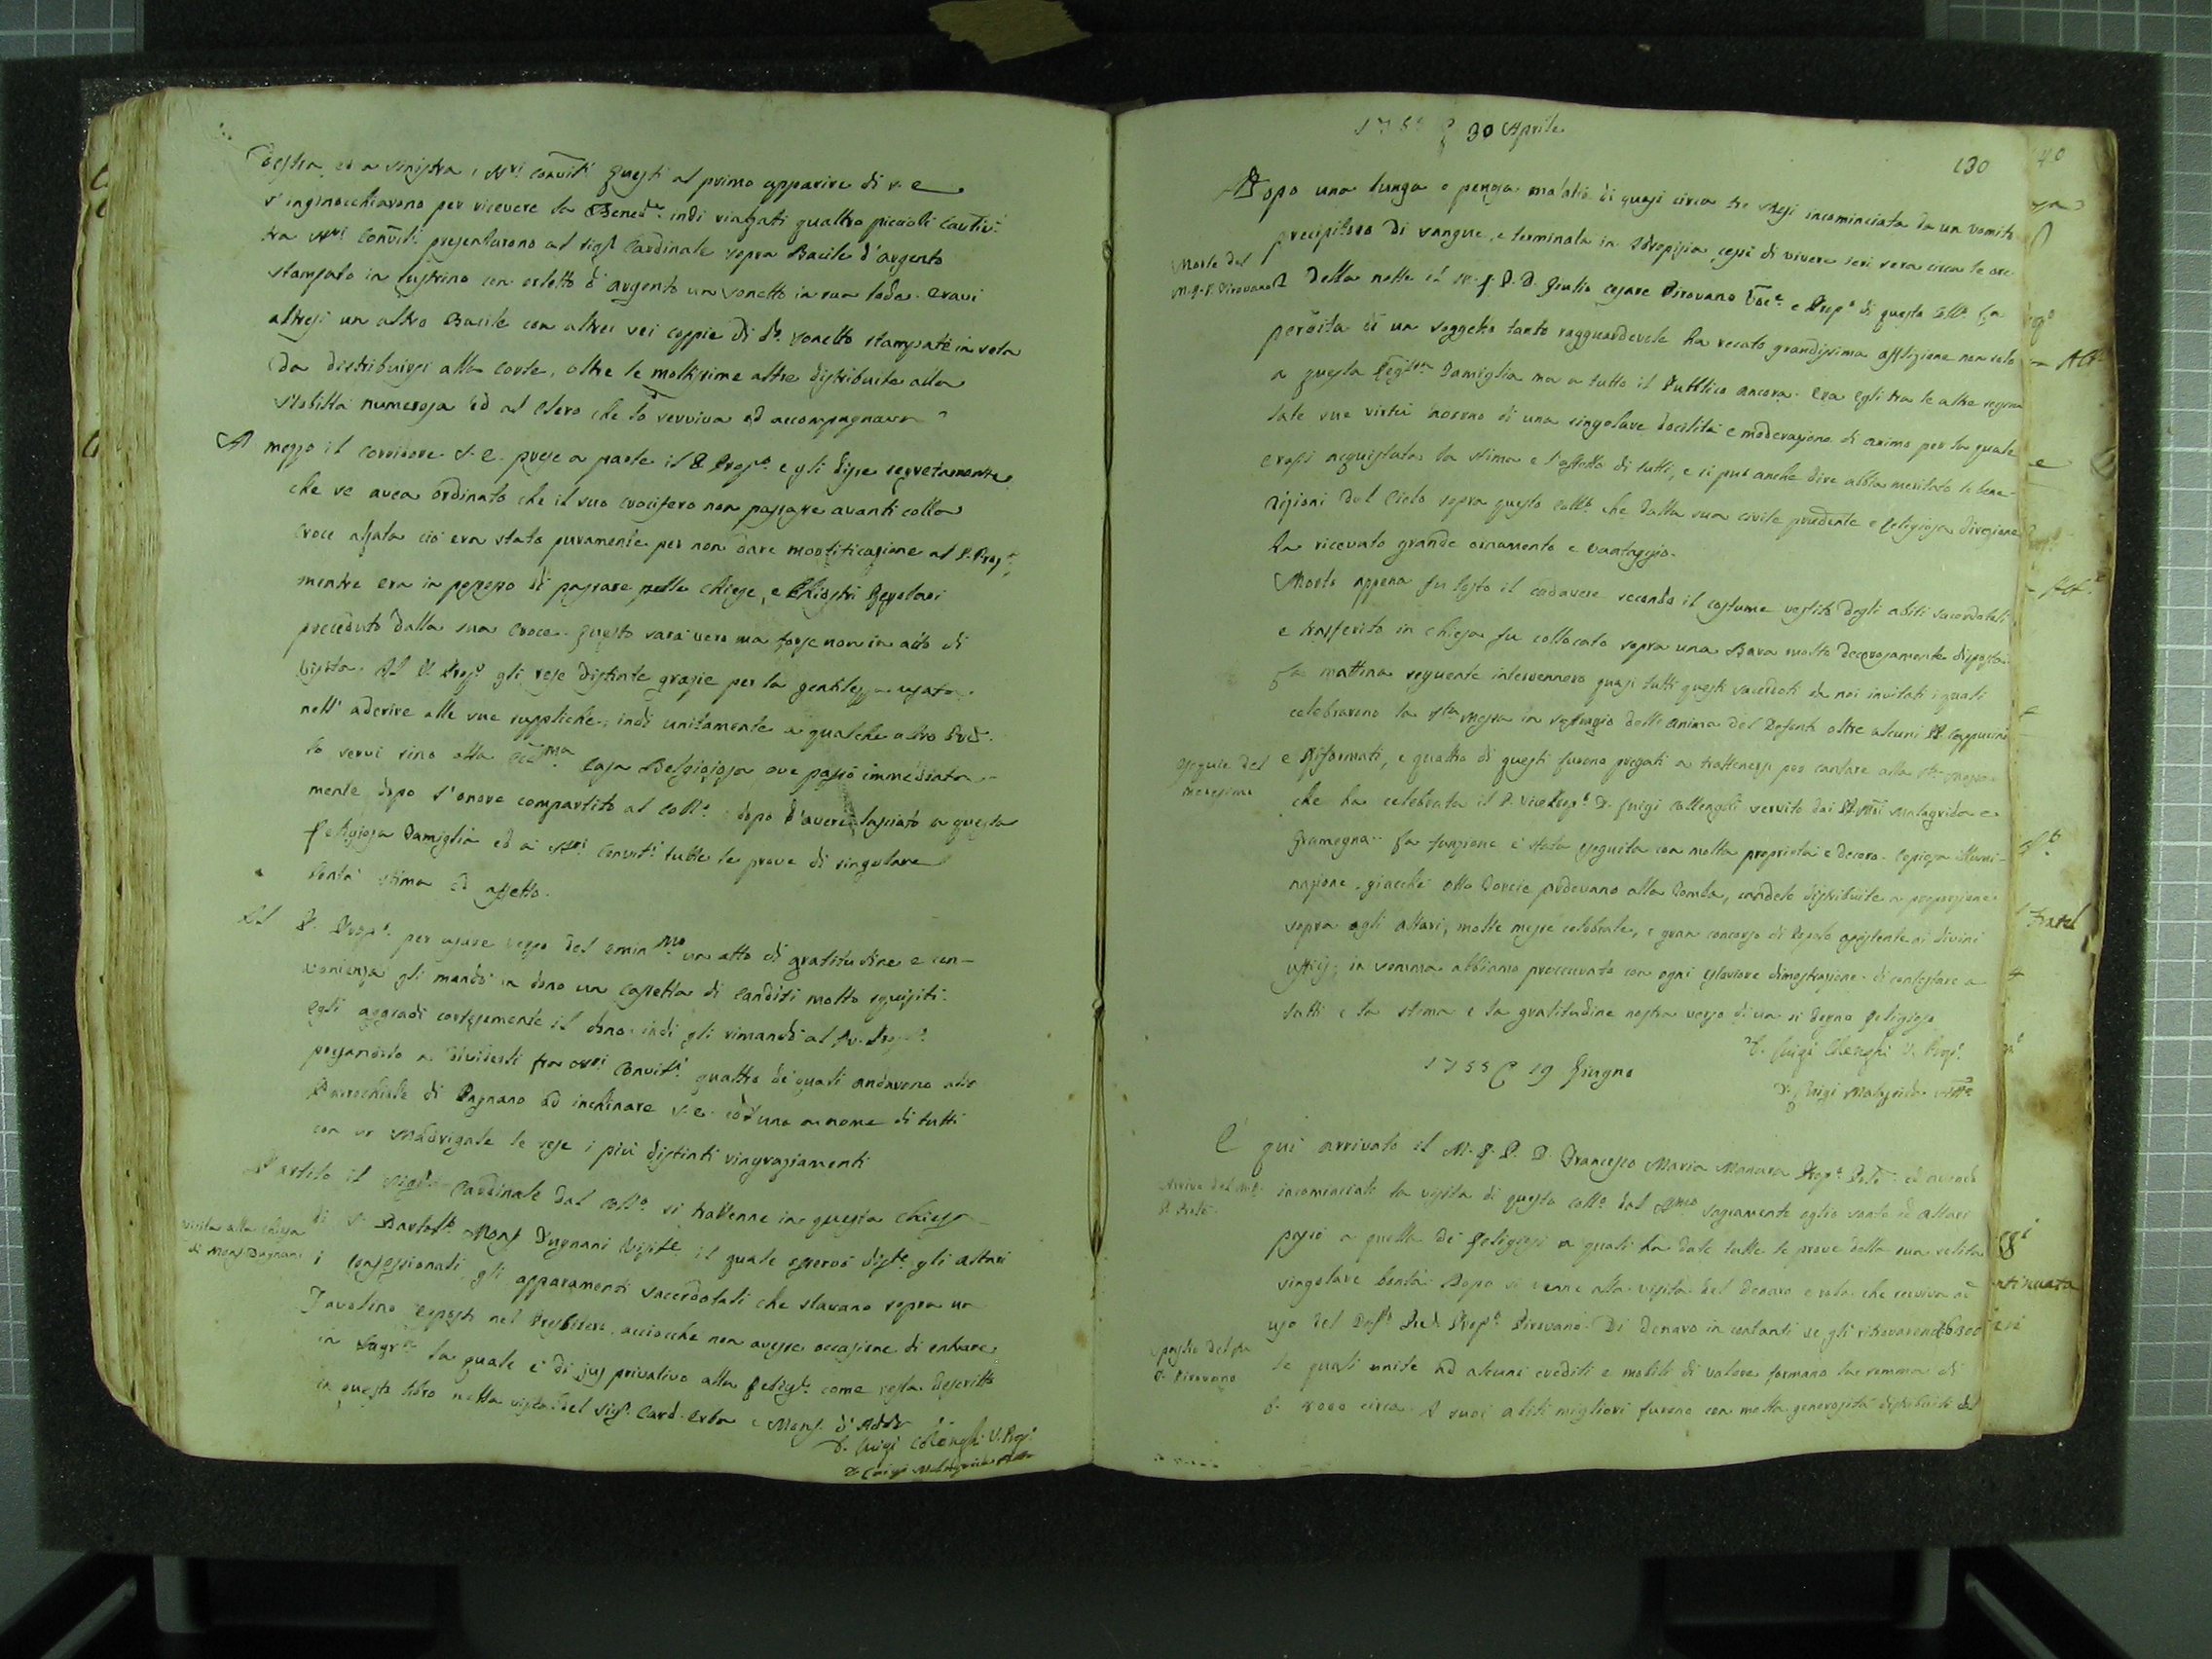 destra, ed a sinistra i Nri Convitti. Questi al primo apparire di S. E.
s'inginocchiarono per ricevere la Benedne. indi rialzati quattro piccioli
tra Nri Convitti. presentarono al Sigr. Cardinale sopra Bacile d'argento
stampato in lustrino con orletto d'argento un Sonetto in sua lode. Eravi
altresì un altro Bacile con altre sei coppie di do. Sonetto stampate in seta
da distribuirsi alla Corte, oltre le moltissime altre distribuite alla
Nobiltà numerosa ed al Clero che lo serviva ed accompagnava
A mezzo il Corridore S. E. prese a parte il P. Propto. e gli disse segretamente
che se avea ordinato che il suo Crocifero non passasse avanti colla
Croce alzata ciò era stato puramente per non dare mortificazione al P. Propto.
mentre era in possesso di passare nelle Chiese, e Chiostri Regolari
preceduto dalla sua Croce. Questo sarà vero ma forse non in atto di
visita. Il P. Propto. gli rese distinte grazie per la gentilezza usata
nell'aderire alle sue suppliche; indi unitamente a qualche altro
lo servì sino alla Eccma. Casa Belgiojosa ove passò immediata-
mente dopo l'onore compartito al Collo. dopo d'avere lasciato a questa
Religiosa Famiglia ed ai Nri Convitti. tutte le prove di singolare
bontà stima ed affetto.
Il P. Propto. per usare verso del Eminmo. un atto di gratitudine e con-
venienza gli mandò in dono un Cassetta di Canditi molto squisiti.
Egli aggradì cortesemente il dono. indi gli rimandò al P. Propto.
pregandolo a dividerli fra Nri Convitti. quattro de' quali andarono alla
Parrochiale di Pagnano ad inchinare S. E. ed uno a nome di tutti
con un Madrigale le rese i più distinti ringraziamenti
Partito il Sigr. Cardinale dal Collo. si trattenne in questa Chiesa
Visita alla Chiesa
di Monsr. Dugnani
di S. Bartolo. Monsr. Dugnani Visite. il quale osservò gli Altari
i Confessionali, gli apparamenti sacerdotali che stavano sopra un
Tavolino esposti nel Presbitero acciocche non avesse occasione di entrare
in Sagrtia. la quale è di jus privativo alla Religne. come resta descritto
in questo libro nella visita del Sigr. Card. Erba e Monsr. d'Adda
D. Luigi V. Propto.
D. Luigi Malagrida
1755 30 Aprile
130
Dopo una lunga e penosa malatia di quasi circa tre Mesi incominciata da un vomito
precipitoso di sangue, e terminata in Idropisia cessò di vivere ieri sera circa le ore
Morte del
M. R. P. Pirovano
2 della notte il M. R. P. D. Giulio Cesare Pirovano Voce. e Propto. di questo Collo. La
perdita di un soggetto tanto ragguardevole ha recato grandissima afflizione non solo
a questa Religsa. Famiglia ma a tutto il Pubblico ancora. Era egli tra le altre segna
late sue virtù adorno di una singolare docilità e moderazione di animo per la quale
erasi acquistata la stima e l'affetto di tutti, e si può anche dire abbia meritato le bene-
dizioni del Cielo sopra questo Collo. che dalla sua civile prudente e religiosa direzione
ha ricevuto grande ornamento e vantaggio.
Morto appena fu tosto il cadavere secondo il costume vestito degli abiti sacerdotali
e trasferito in Chiesa fu collocato sopra una Bara molto decorosamente disposta.
La mattina seguente intervennero quasi tutti questi sacerdoti da noi invitati i quali
celebrarono la Sta Messa in suffragio dell'anima del Defunto oltre alcuni PP. Cappucini
Esequie del
medesimo
e Riformati, e quattro di questi furono pregati a trattenersi per cantare alla Sta. Messa
che ha celebrata il P. Vice Propto. D. Luigi servito dai PP. Malagrida e
Gramegna. La funzione è stata eseguita con molta proprietà e decoro. Copiosa illumi-
nazione, giacchè otto Torcie ardevano alla Tomba, candele distribuite a proporzione
sopra agli altari, molte messe celebrate, e gran concorso di Popolo assistente ai divini
ufficij; in somma abbiamo proccurato con ogni esteriore dimostrazione di contestare a
tutti e la stima e la gratitudine nostra verso di un sì degno Religioso
D. Luigi V. Propto.
1755 19 Giugno
D. Luigi Malagrida
È qui arrivato il M. R. P. D. Francesco Maria Manara Propto. ed avendo
Arrivo del M. R.
incominciata la visita di questo Collo. dal Smo. Sagramento oglio santo ed Altari
passò a quella de' Religiosi a quali ha date tutte le prove della sua solita
singolare bontà. Dopo si venne alla visita del denaro e robe che serviva ad
uso del Propto. Pirovano. Di denaro in contanti se gli ritrovarono
Spoglio del
P. Pirovano
le quali unite ad alcuni crediti e mobili di valore formano la somma di
8000 circa. I suoi abiti migliori furono con molta generosità distribuiti dal